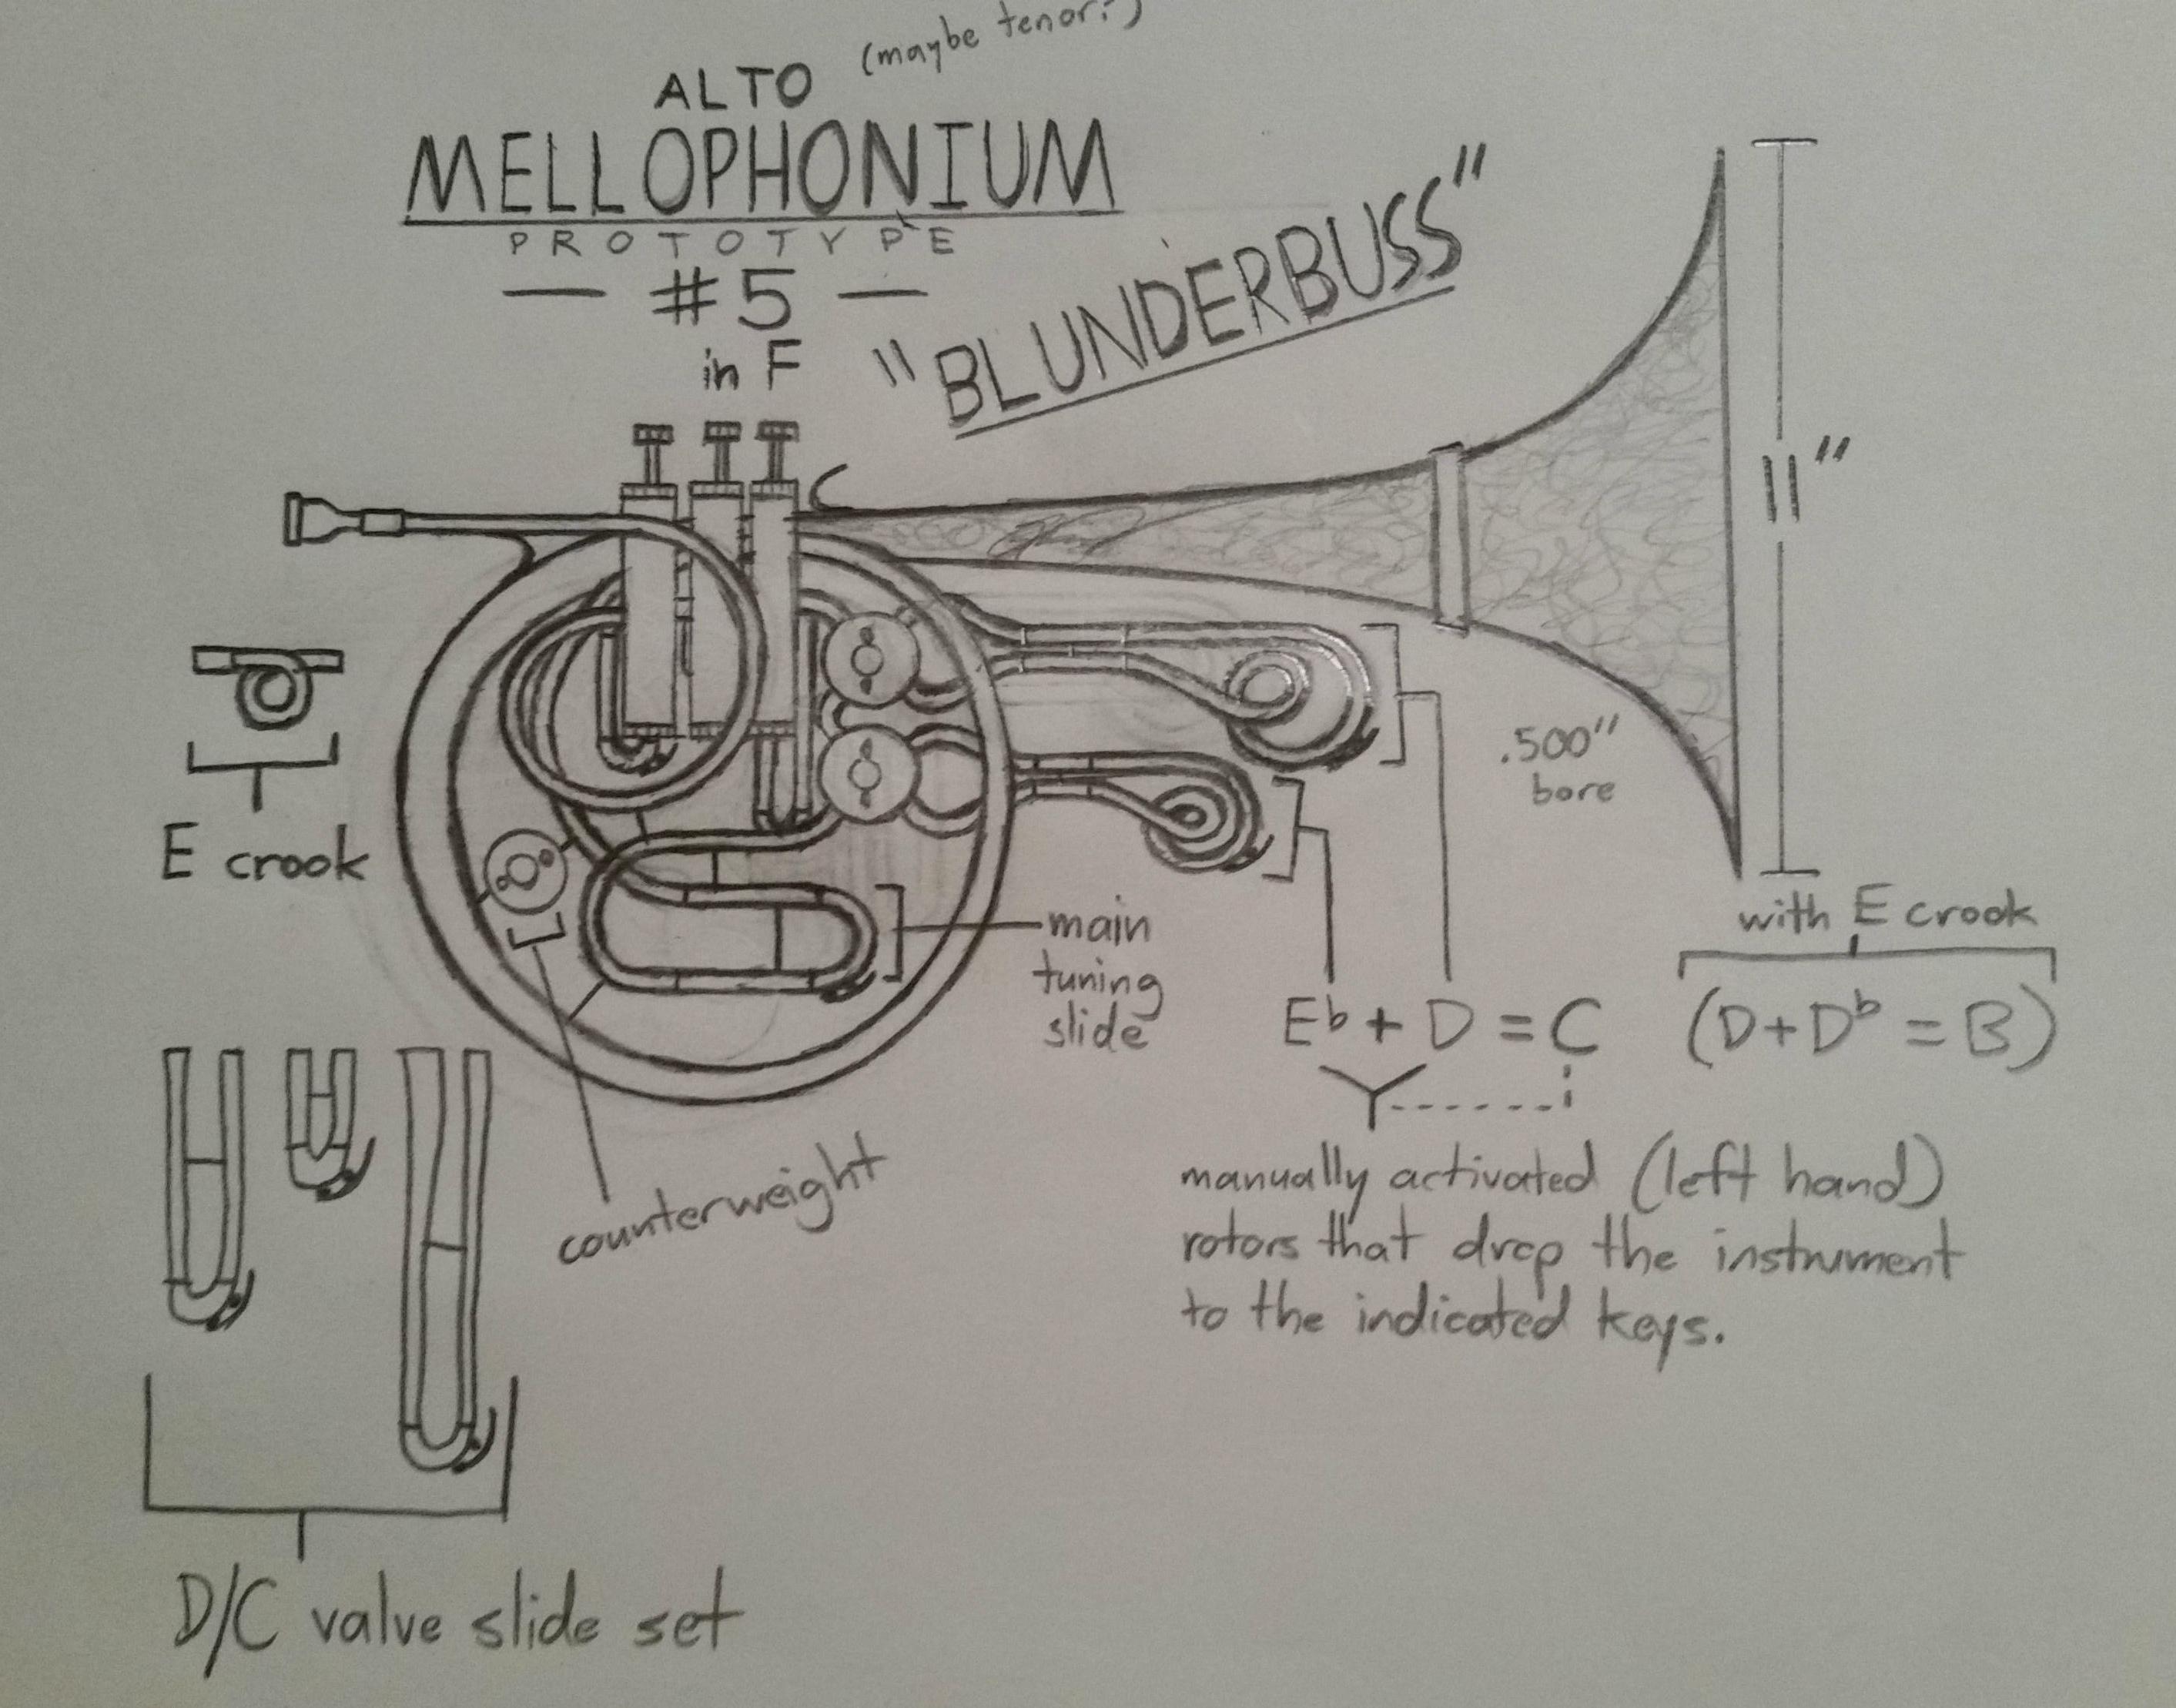 (maybe tenor?)
ALTO
MELLOPHONIUM
PROTOTYPE
— #5 —
in F
"BLUNDERBUSS"
11"
.500"
bore
E crook
main
tuning
slide
with E crook
Eb + D = C
(D+Db = B)
counterweight
manually activated (left hand)
rotors that drop the instrument
to the indicated keys.
D/C valve slide set